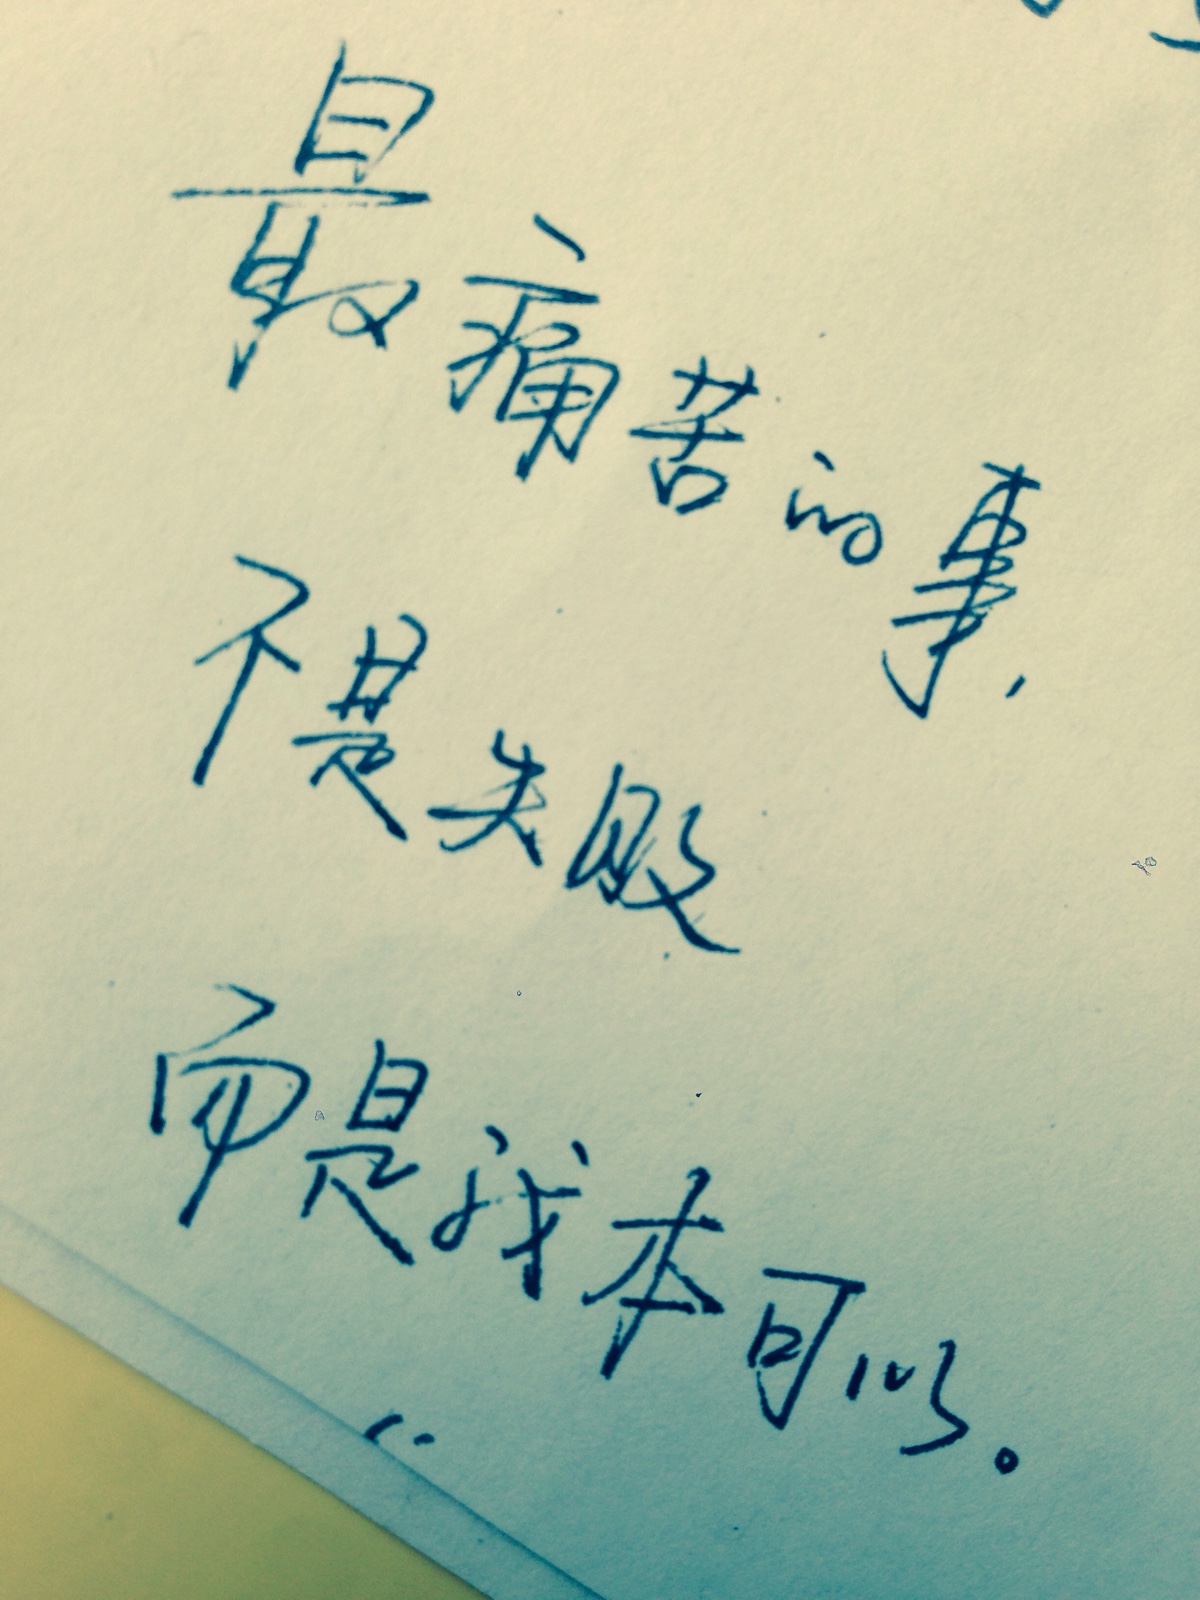 最痛苦的事，
不是失败
而是我本可以。